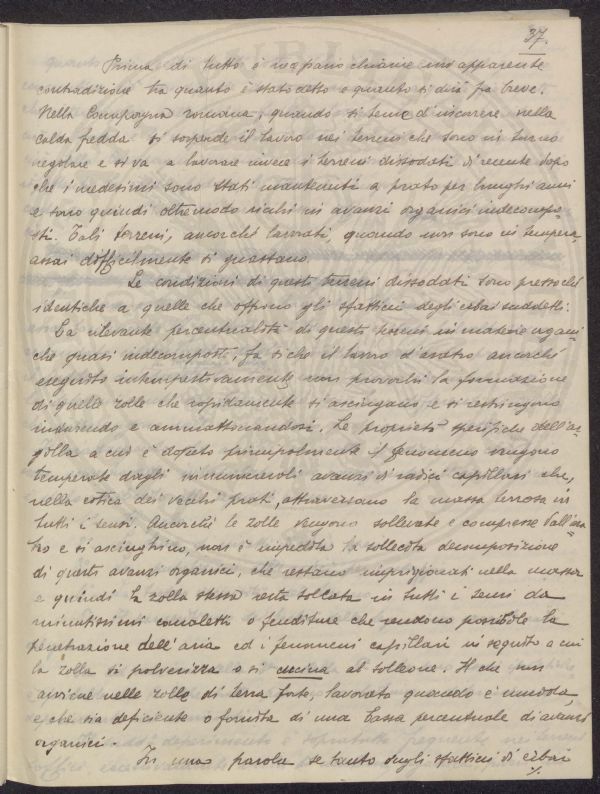 37.
Prima di tutto è necessario chiarire un'apparente
contradizione tra quanto è stato detto e quanto si dirà fra breve.
Nella Campagna romana, quando si teme d'incorrere nella
calda fredda si sospende il lavoro nei terreni che sono in turno
regolare e si va a lavorare invece i terreni dissodati di recente dopo
che i medesimi sono stati mantenuti a prato per lunghi anni
e sono quindi oltremodo ricchi in avanzi organici indecompo
sti. Tali terreni, ancorché lavorati, quando non sono in tempera,
assai difficilmente si guastano
Le condizioni di questi terreni dissodati sono pressoché
identiche a quelle che offrono gli sfatticci degli erbai suddetti.
La rilevante percentualità di questi terreni in materie organi=
che quasi indecomposti, fa sì che il lavoro d'aratro ancorché
eseguito intempestivamente non provochi la formazione
di quelle zolle che rapidamente si asciugano e si restringono
indurendo e ammattonandosi. Le proprietà specifiche dell'ar=
gilla a cui è dovuto principalmente il fenomeno vengono
temperate dagli innumerevoli avanzi di radici capillari che,
nella cotica dei vecchi prati, attraversano la massa terrosa in
tutti i sensi. Ancorché le zolle vengono sollevate e compresse dall'ara=
tro e si asciughino, non è impedita la sollecita decomposizione
di questi avanzi organici, che restano imprigionati nella massa
e quindi la zolla stessa resta solcata in tutti i sensi da
minutissimi canaletti o fenditure che rendono possibile la
penetrazione dell'aria ed i fenomeni capillari in seguito a cui
la zolla si polverizza o si cucina al solleone. Il che non
avviene nelle zolle di terra forte, lavorata quando è umida,
e che sia deficiente o fornita di una bassa percentuale di avanzi
organici.
In una parola se tanto sugli sfatticci di erbai